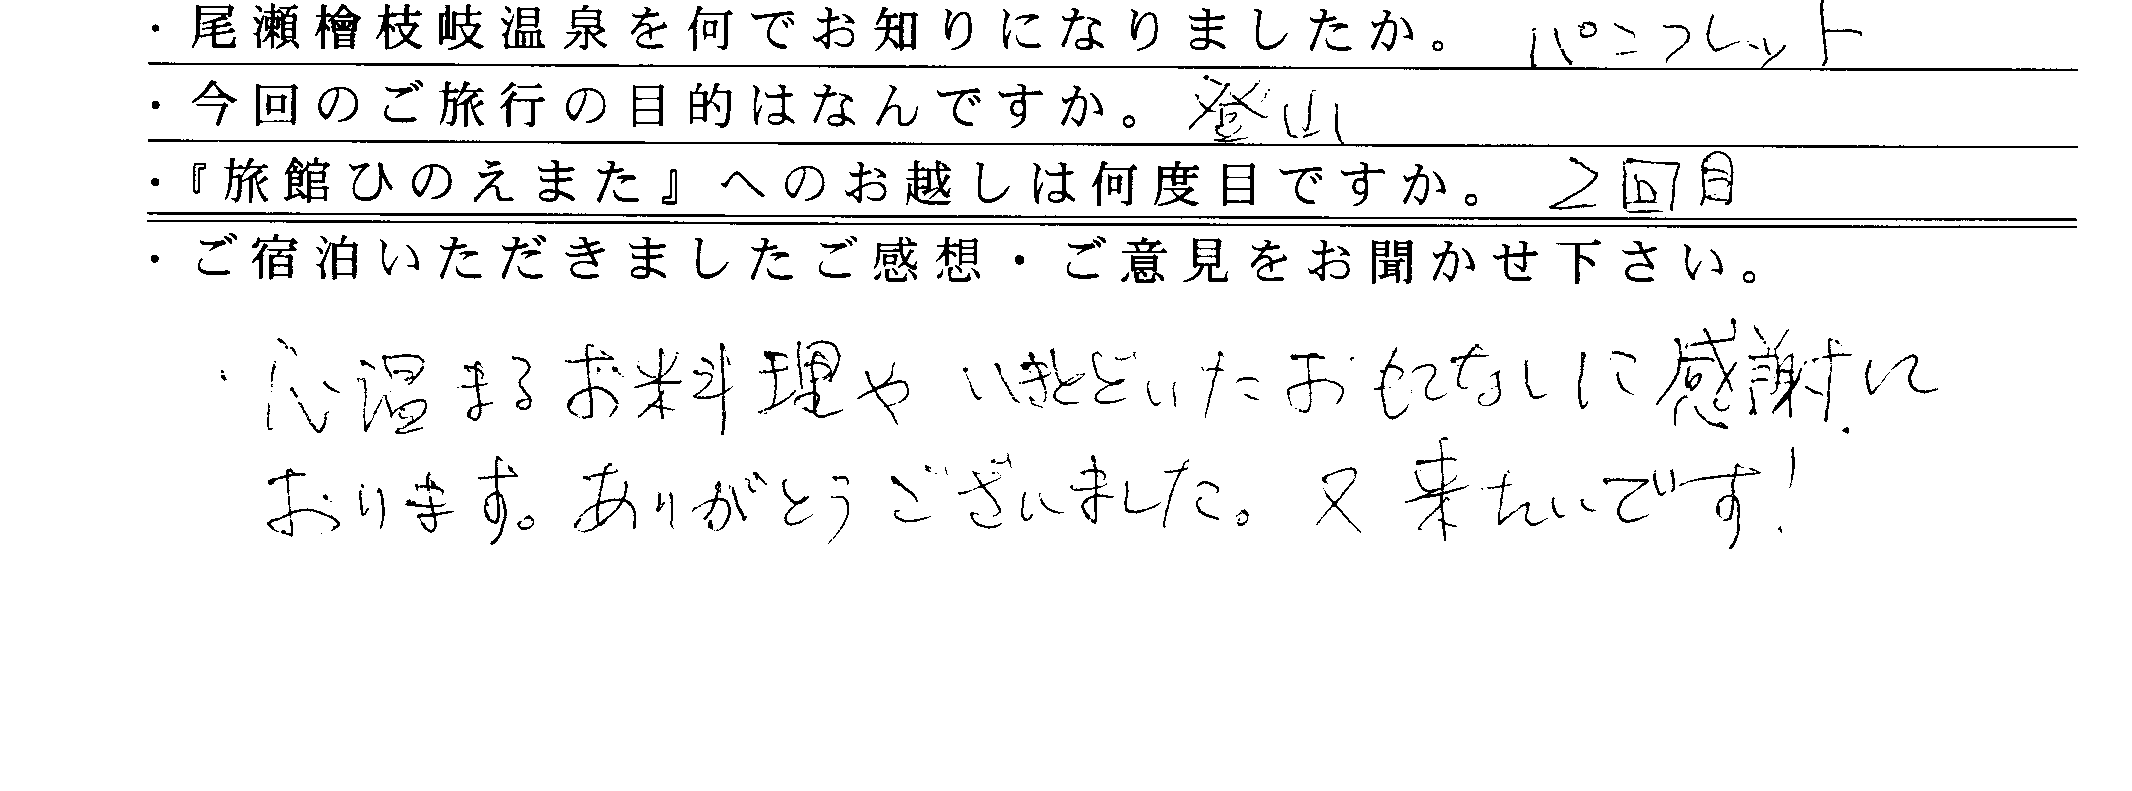 ・尾瀬檜枝岐温泉を何でお知りになりましたか。 パンフレット
・今回のご旅行の目的はなんですか。 登山
・『旅館ひのえまた』へのお越しは何度目ですか。 2回目
・ご宿泊いただきましたご感想・ご意見をお聞かせ下さい。
・心温まるお米料理や いきとどいたおもてなしに感謝して
おります。ありがとうございました。又来たいです!